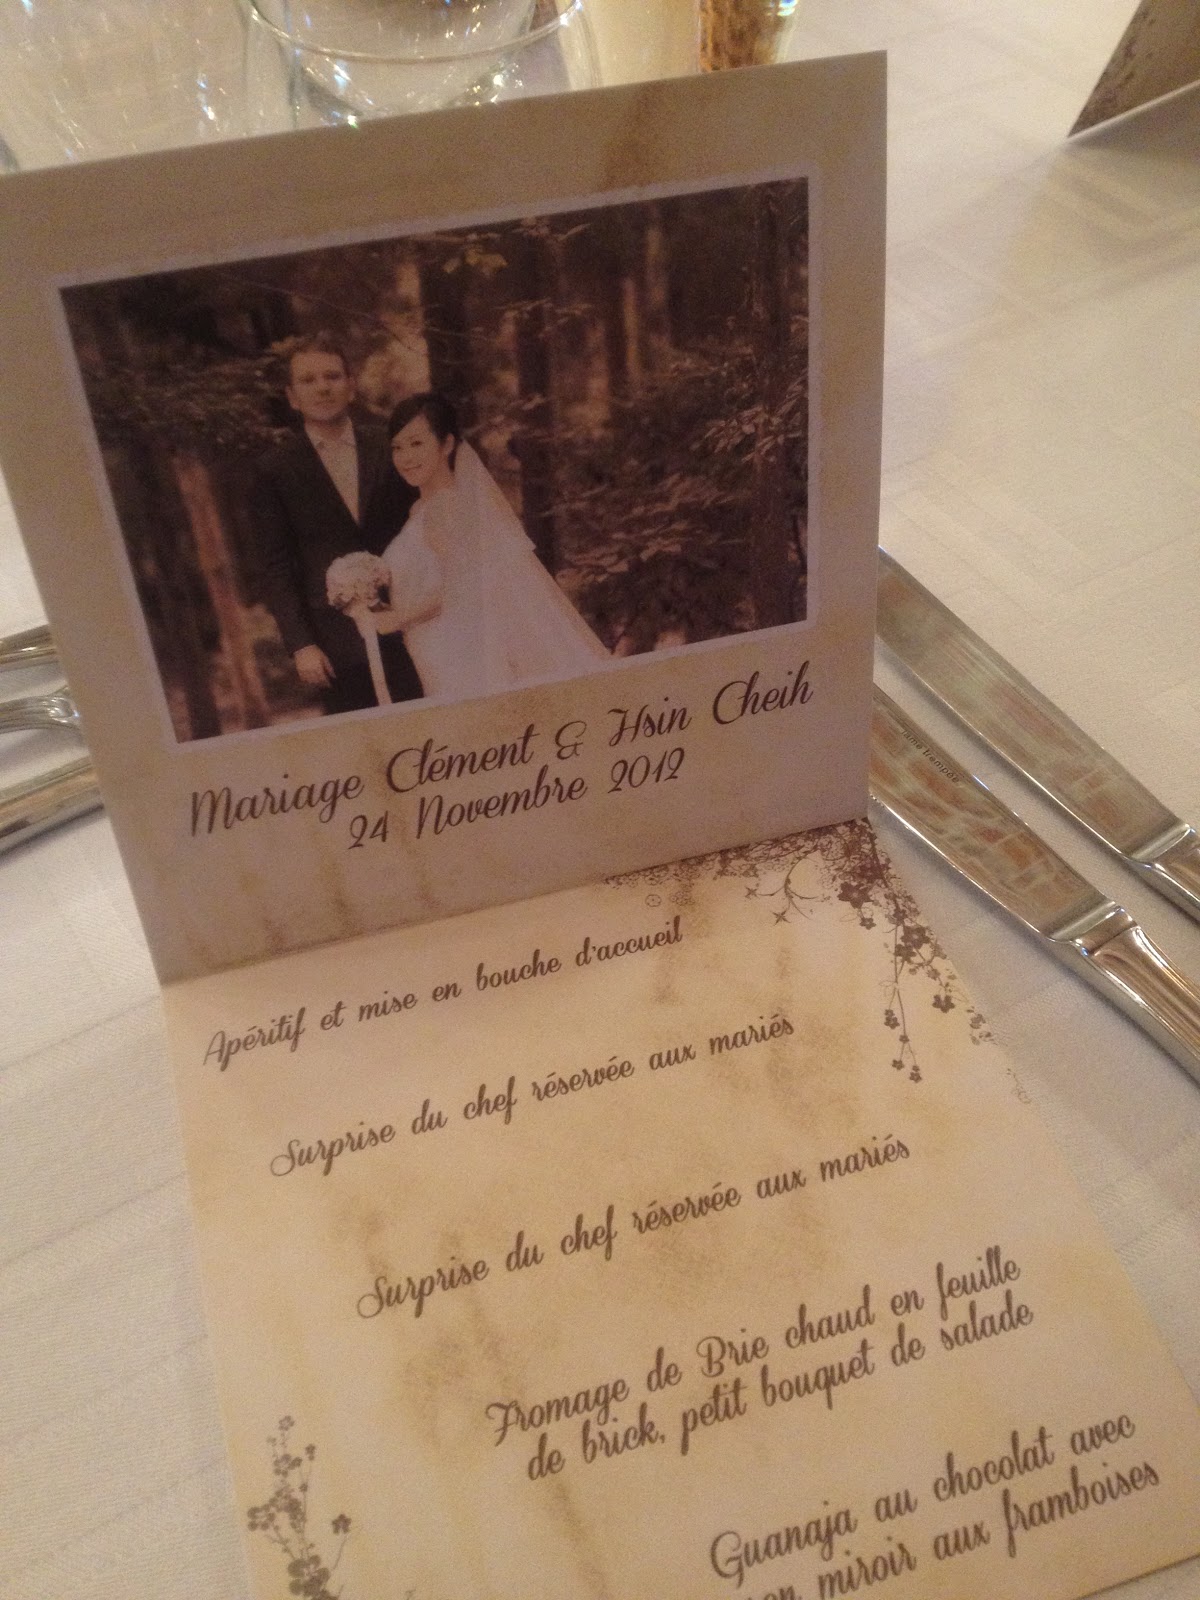 Mariage Clément & Hsin Cheih
24 Novembre 2012
Apéritif et mise en bouche d'accueil
Surprise du chef réservée aux mariés
Surprise du chef réservée aux mariés
Fromage de Brie chaud en feuille
de brick, petit bouquet de salade
Guanaja au chocolat avec
son miroir aux framboises
lame trempée